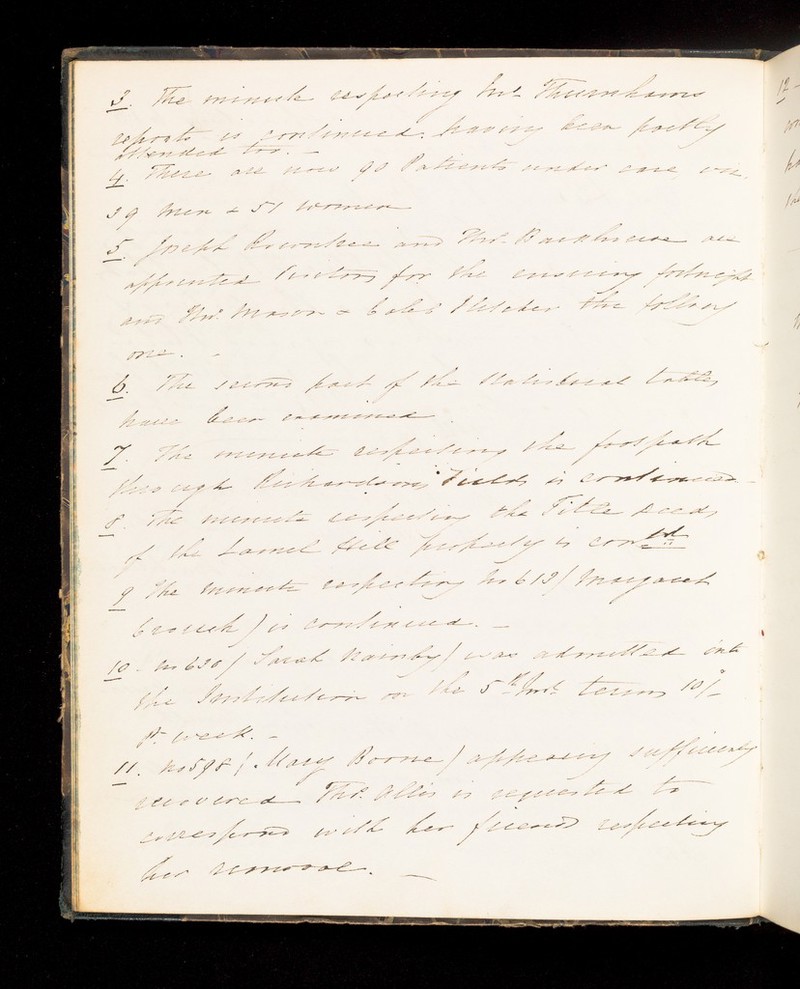 3. The minute respecting Mr. Thurnhams
reports is continued, having been partly
attended too. —
4. There are now 90 Patients under care, viz.
39 men & 51 women
5. Joseph Rowntree and Thos. Backhouse are
appointed Visitors for the ensuing fortnight
and Thos. Mason & Caleb Fletcher the follow.g
one. —
6. The second part of the Statistical tables
have been examined.
7. The minute respecting the footpath
through Richardsons Fields is continued —
8. The minute respecting the Title deeds
of the Lamel Hill property is contd.
9 The minute respecting No 613 (Margaret
) is continued. —
10 - No 630 (Sarah ) was admitted into
the Institution on the 5th Inst. terms 10/-
pr. week. —
11. No 598 (Mary Boone) appearing sufficiently
recovered Thos. Allis is requested to
correspond with her friends respecting
her removal. —
12 -